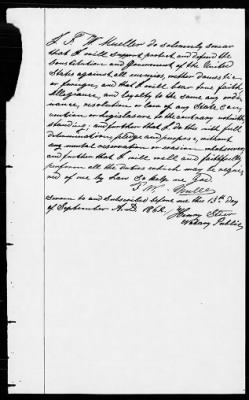 I, F. W. Mueller do solemnly swear
that I will support, protect, and defend the
Constitution and Government of the United
States against all enemies, whether domestic
or foreign, and that I will bear true faith,
Allegiance, and loyalty to the same, any ordi-
nance, resolution or law of any State, Con-
vention or Legislature to the contrary notwith-
standing; and further that I do this with full
determination, pledge and purpose, without
any mental reservation or evasion whatsoever
and further that I will well and faithfully
perform all the duties which may be requir-
ed of me by law So help me God.
F. W. Mueller
sworn to and subscribed before me this 13th day
of September A.D. 1862.
Henry
Notary Public